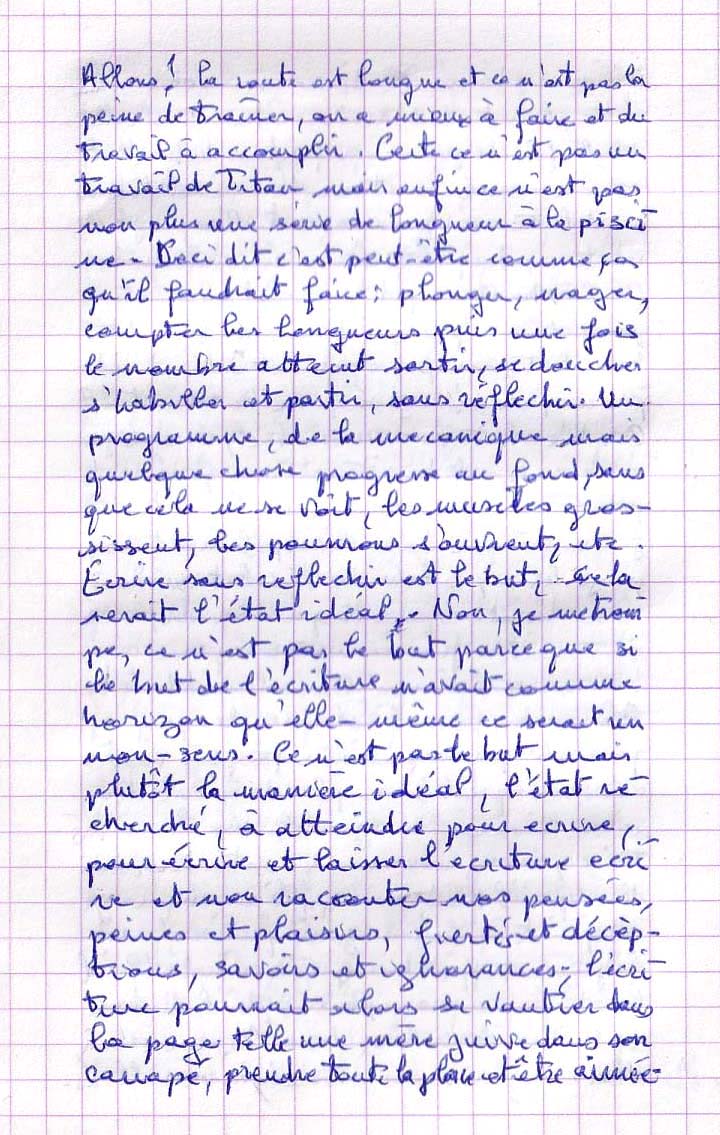 Allons! La route est longue et ce n'est pas la
peine de traîner, on a mieux à faire et du
travail à accomplir. Certe ce n'est pas un
travail de Titan mais enfin ce n'est pas
non plus une série de longueur à la pisci
ne. Ceci dit c'est peut-être comme ça
qu'il faudrait faire: plonger, nager,
compter les longueurs puis une fois
le nombre atteint sortir, se doucher
s'habiller et partir, sans réflechir. Un
programme, de la mecanique mais
quelque chose progresse au fond, sans
que cela ne se voit, les muscles gros-
sissent, les poumons s'ouvrent, etc.
Écrire sans reflechir est le but, cela
serait l'état idéal. Non, je me trom
pe, ce n'est pas le but parce que si
le but de l'écriture n'avait comme
horizon qu'elle-même ce serait un
non-sens. Ce n'est pas le but mais
plutôt la manière idéal, l'état re
cherché, à atteindre pour ecrire,
pour écrire et laisser l'écriture ecri
re et non raconter nos pensées,
peines et plaisirs, fiertés et décèp-
tions, savoirs et ignorances; l'écri
ture pourrait alors se vautrer dans
la page telle une mère juive dans son
canapé, prendre toute la place et être aimée